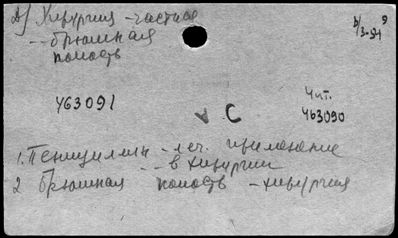 А) Хирургия - частная
- - брюшная
полость
463091
С
Чит.
463090
1. Пенициллин - леч. применение
- в хирургии
2 Брюшная полость - хирургия